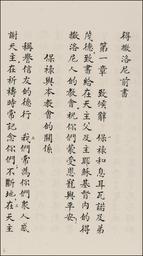 得撒洛尼前書
第一章　致候辭　保祿和息耳瓦諾及弟
茂德致書給在天主父及主耶穌基督內的得
撒洛尼人的教會祝你們蒙受恩寵與平安
保祿與本教會的關係
稱譽信友的德行　我們常為你們眾人感
謝天主在祈禱時常記念你們不斷地在天主